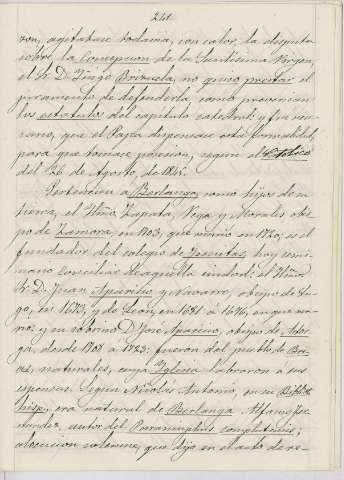 241
zon, agitabase todavia, con calor, la disputa
sobre la Concepcion de la Santísima Virgen,
el Sr. D. Iñigo Brizuela, no quiso prestar el
juramento de defenderla, como prevenian
los estatutos del capitulo catedral; y fué nece-
sario, que el Papa dispensase esta formalidad,
para que tomase posesion, segun el
del 26 de Agosto, de
Pertenecen a Berlanga, como hijos de su
tierra, el Yltmo. Zapata, Vega y Morales obis-
po de Zamora en 1703, que murio en 1720; es el
fundador del colegio de Jesuitas, hoy semi-
nario conciliar de aquella ciudad: el Yltmo.
Sr. D. Juan, Aparicio y Navarro, obispo de Lu-
go, en 1673, y de Leon, en 1681 á 1696, en que mu-
rio: y su sobrino D. José Aparicio, obispo de Astor-
ga, desde 1708 á 1723: fueron del pueblo de Bri-
as, naturales, cuya Yglesia labraron á sus
espensas. Segun Nicolás Antonio, en su Biblioth.
hisp., era natural de Berlanga Alfonso Fer-
nandez, autor del Paraninphus complutensis;
alocucion solemne, que dijo en el acto de re-